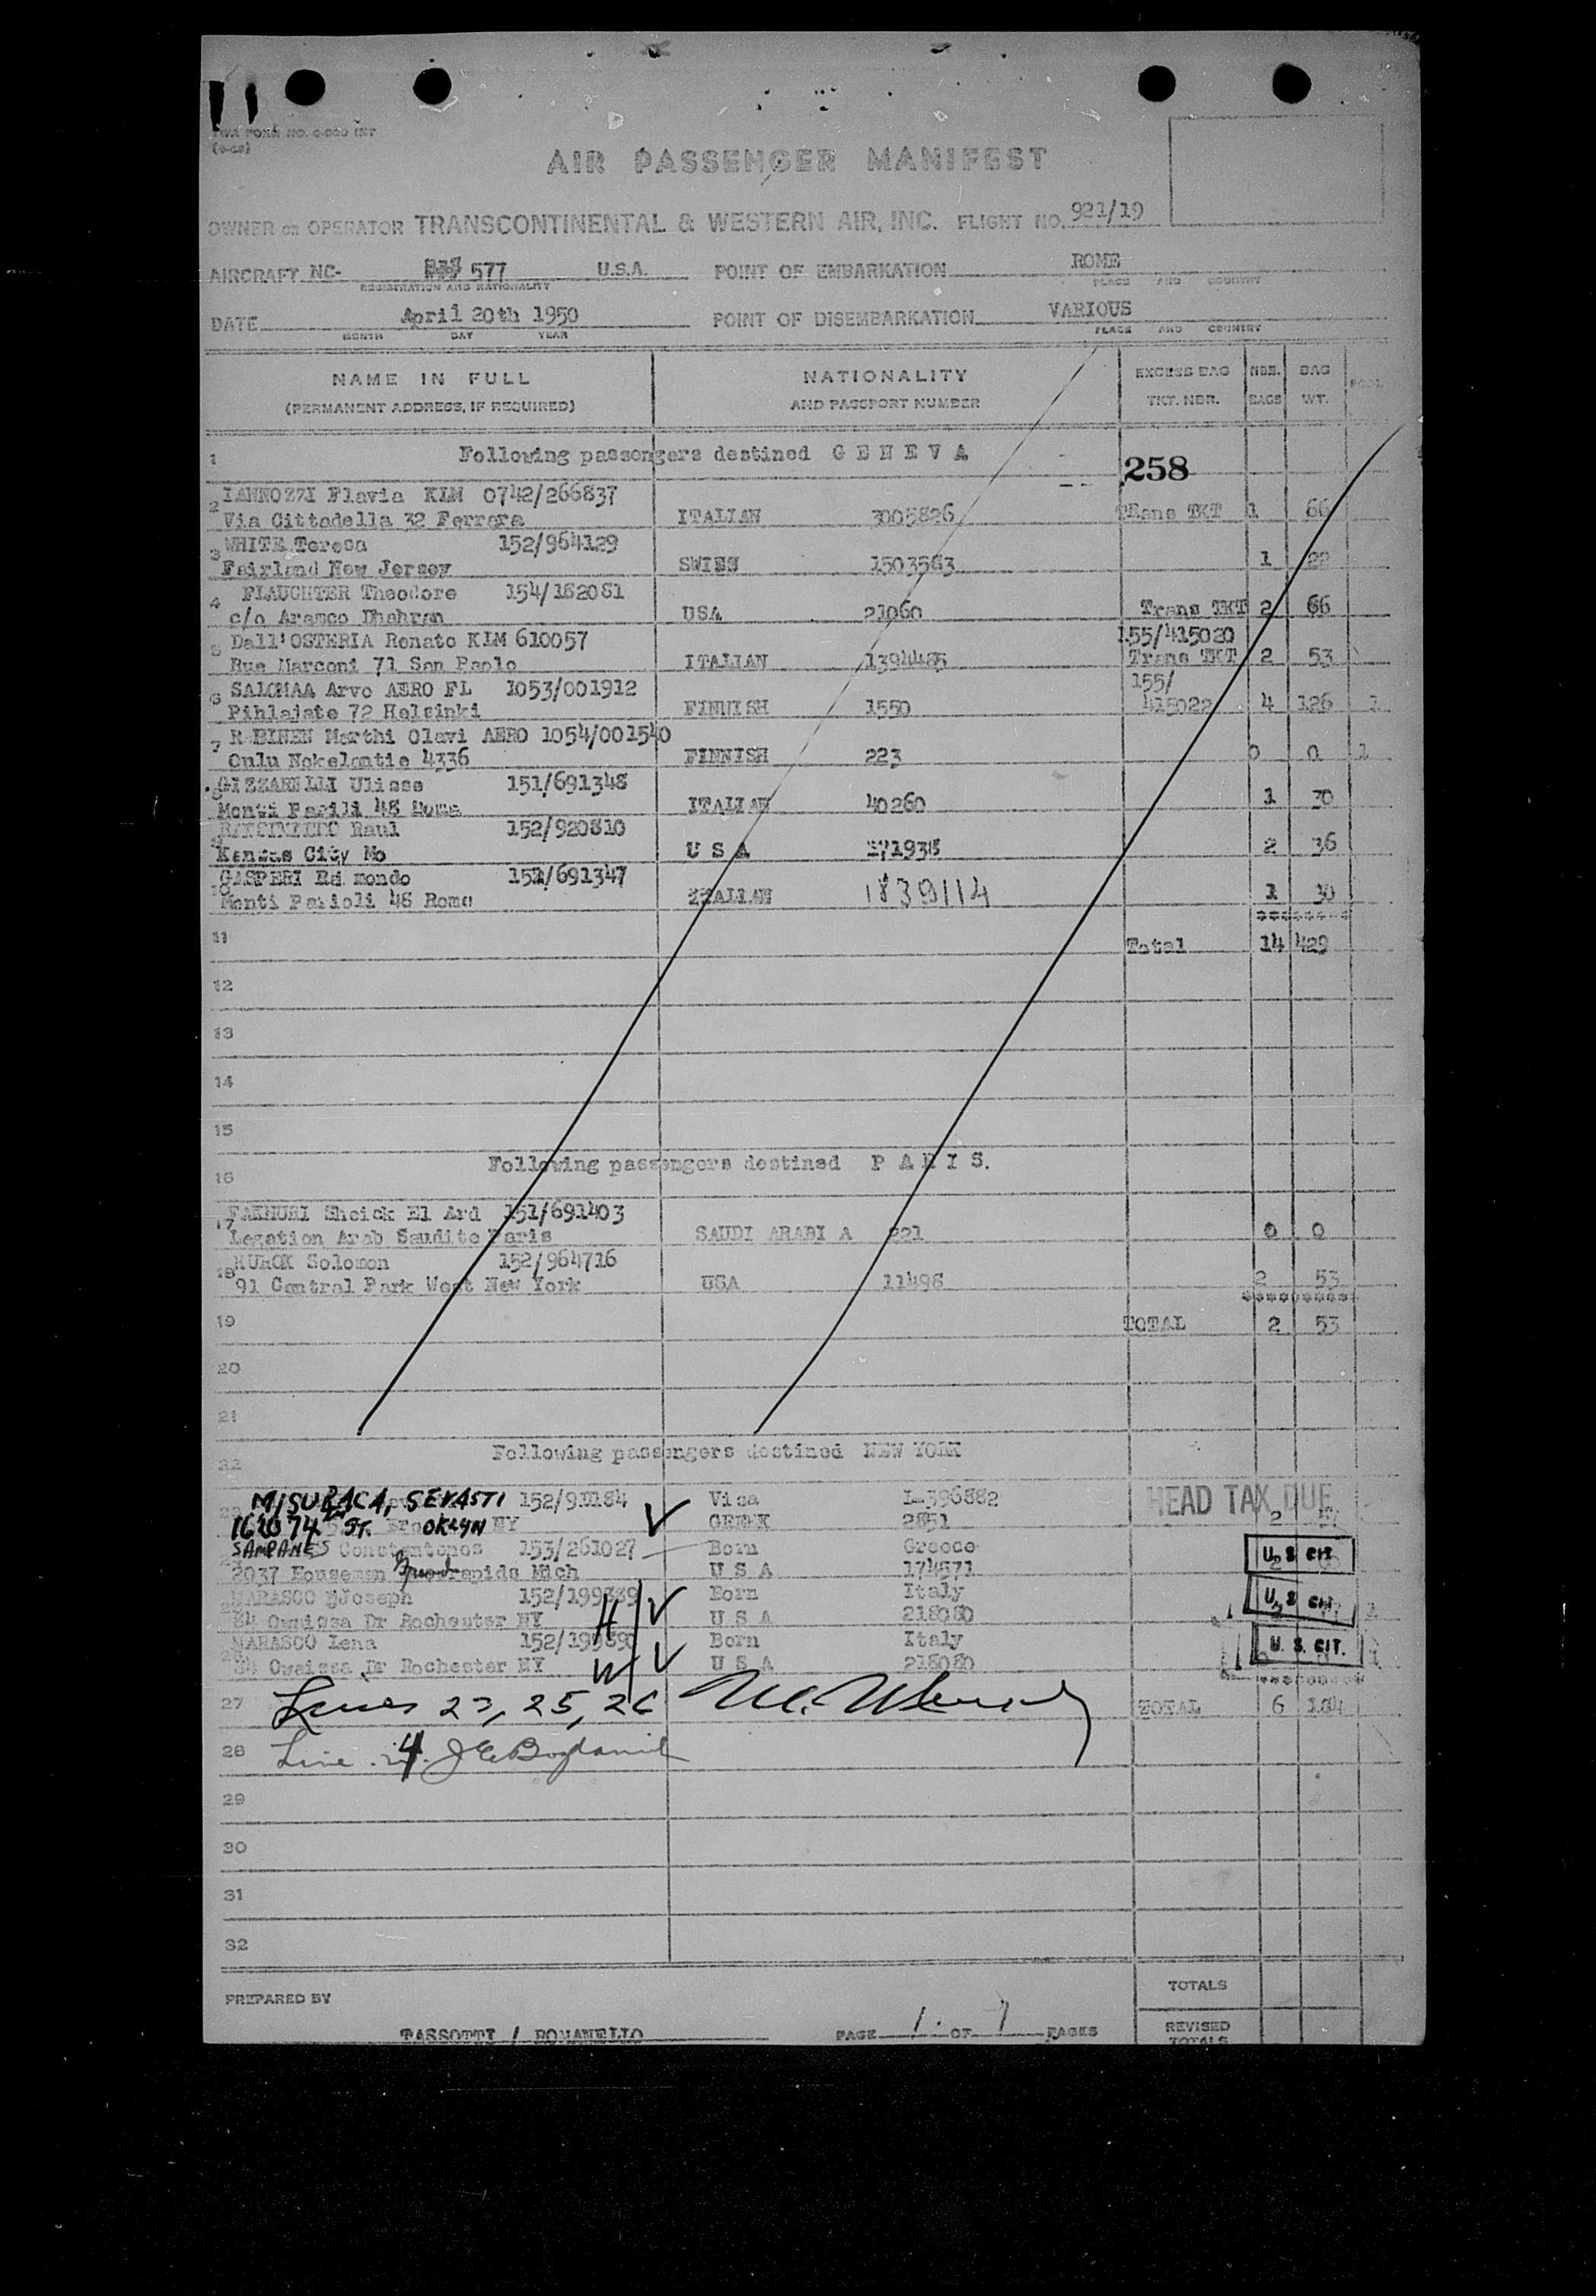 AIR PASSENGER MANIFEST
OWNER OR OPERATOR TRANSCONTINENTAL & WESTERN AIR, INC. FLIGHT NO. 921/19
AIRCRAFT NC- 577 U.S.A. POINT OF EMBARKATION ROME
REGISTRATION AND NATIONALITY PLACE AND COUNTRY
DATE April 20th 1950 POINT OF DISEMBARKATION VARIOUS
MONTH DAY YEAR PLACE AND COUNTRY
NAME IN FULL NATIONALITY EXCESS BAG NBR. BAG
(PERMANENT ADDRESS, IF REQUIRED) AND PASSPORT NUMBER TKT. NBR. BAGS WT.
1 Following passengers destined G E N E V A 258
2 IANNOZZI Flavia KLM 0742/266837
Via Cittadella 32 Ferrara ITALIAN 3005826 Trans TKT 1 66
3 WHITE Teresa 152/964129
Fairland New Jersey SWISS 1503583 1 22
4 FLAUCHTER Theodore 154/182081
c/o Aramco Dhahran USA 21060 Trans TKT 2 66
5 Dall'OSTERIA Renato KLM 610057 155/415020
Rue Marconi 71 San Paolo ITALIAN 1394485 Trans TKT 2 53
6 SALOMAA Arvo AERO FL 1053/001912 155/
Pihlajate 72 Helsinki FINNISH 1550 415022 4 126 1
7 R BINEN Marthi Olavi AERO 1054/001540
Oulu Nokelantie 4336 FINNISH 223 0 0 1
GIZZARELLI Ulisse 151/691348
Monti Parili 48 Roma ITALIAN 40260 1 30
Raul 152/920810
Kansas City Mo U S A 271938 2 36
GASPERI Rai mondo 151/691347
Monti Parioli 48 Roma ITALIAN 1839114 1 30
********
11 Total 14 429
12
13
14
15
16 Following passengers destined P A R I S.
17 FAKHURI Sheick El Ard 151/691403
Legation Arab Saudite Paris SAUDI ARABI A 221 0 0
18 HUROK Solomon 152/964716
91 Central Park West New York USA 11498 2 53
**********
19 TOTAL 2 53
20
21
22 Following passengers destined NEW YORK
MISURACA, SEVASTI 152/91184 Visa I-396882 HEAD TAX DUE
1620 74 ST. BROOKLYN NY GREEK 2851 2
SAMPANES Constantonos 153/261027 Born Greece U.S. CIT.
2037 Houseman Grand rapids Mich U S A 174571
MARASCO Joseph 152/199889 Born Italy U.S. CIT.
84 Owaissa Dr Rochester NY H U S A 218080 1
MARASCO Lena 152/199890 Born Italy U. S. CIT.
84 Owaissa Dr Rochester NY W U S A 218080
********
27 Lines 23, 25, 26 TOTAL 6 184
28 Line 24. J E Bogdanik
29
30
31
32
PREPARED BY TOTALS
TASSOTTI / ROMANELLO PAGE 1. OF 1 PAGES REVISED TOTALS